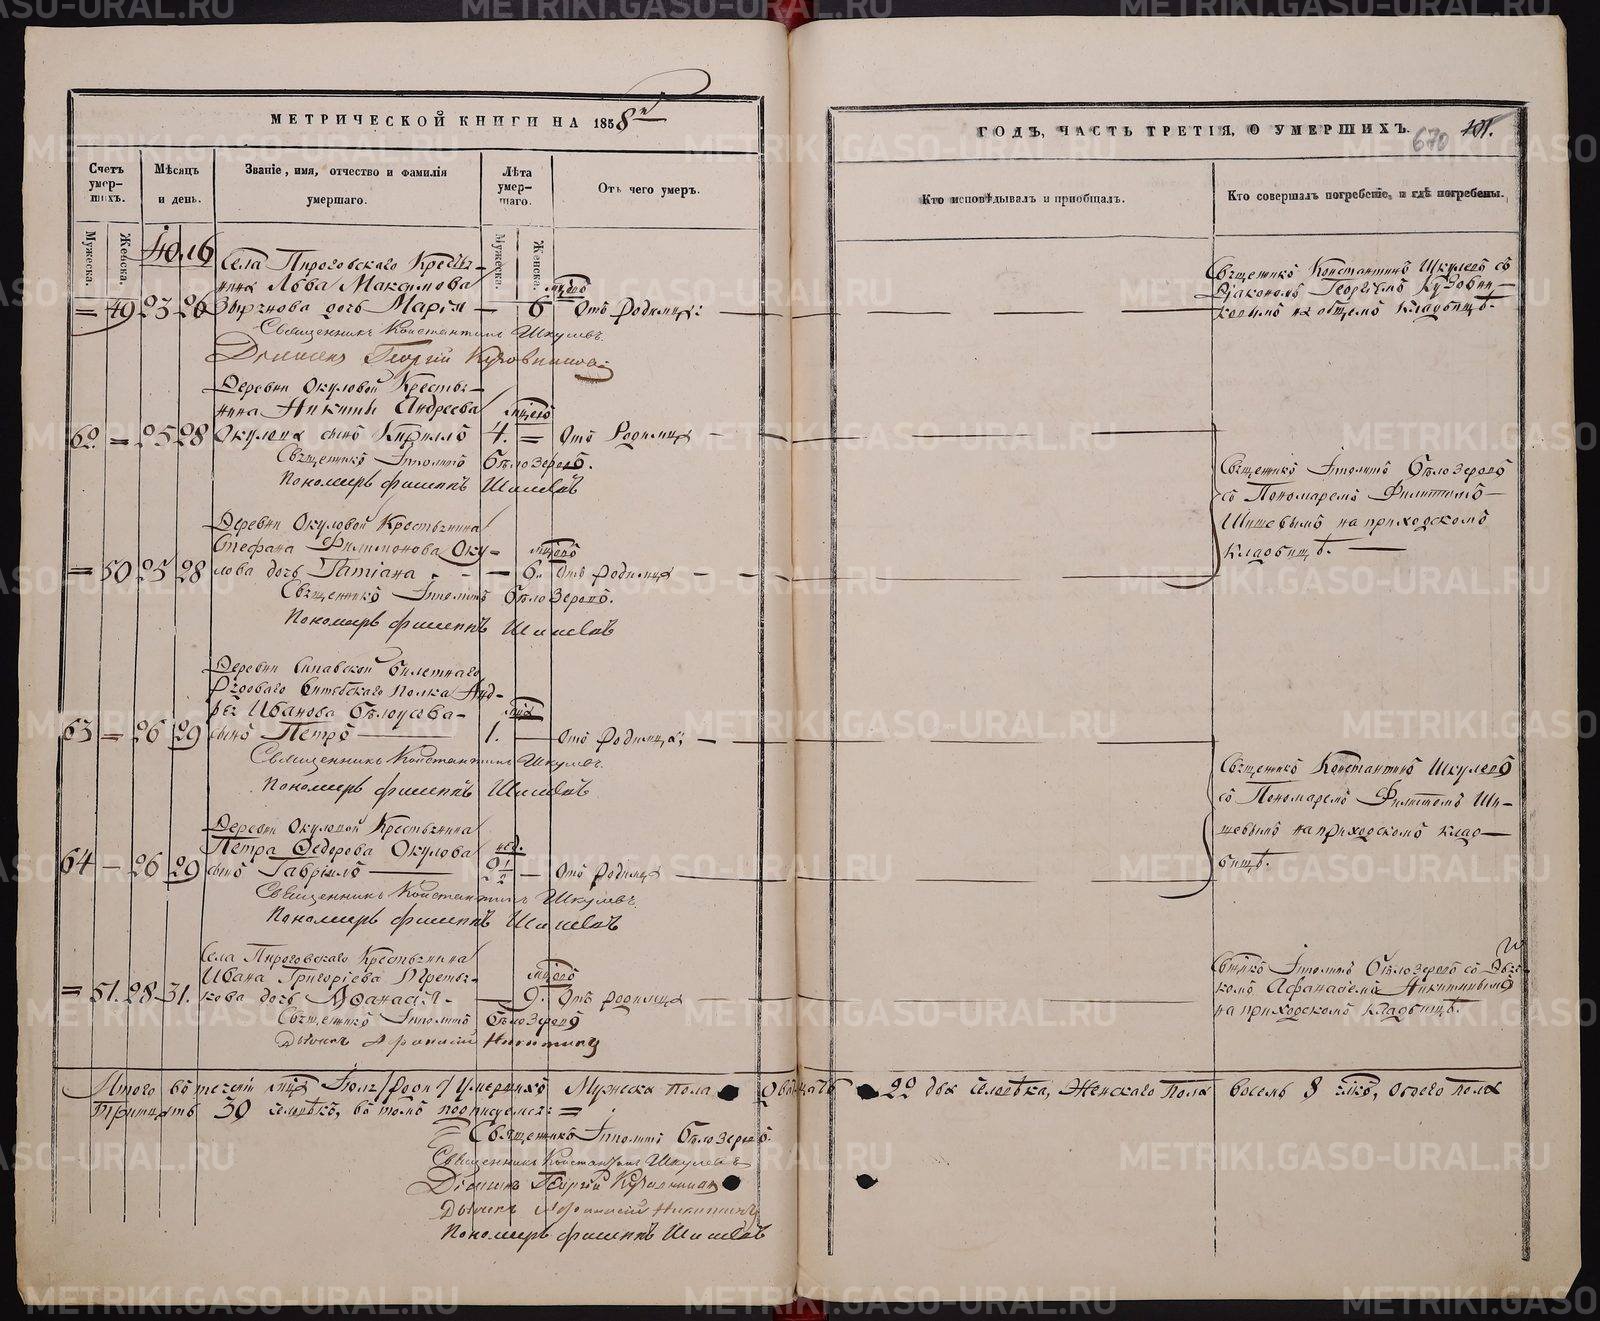 МЕТРИЧЕСКОЙ КНИГИ НА 1858й
Счетъ умер-шихъ.
Мѣсяцъ и день.
Званіе, имя, отчество и фамилія умершаго.
Лѣта умер-шаго.
Отъ чего умеръ.
Мужеска.
Женска.
Мужеска.
Женска.
Села Пироговскаго Крестья-
нина Льва Максимова
= 49 23 26 Зырянова дочь Марія — 6 Отъ Родимца
Священникъ Константинъ Шкулевъ.
Діаконъ Георгій Кузовниковъ
Деревни Окуловой Крестья-
нина Никиты Андреева
62. = 25 28 Окулова сынъ Кириллъ 4. = Отъ Родимца
Священникъ Ипполитъ Бѣлозеровъ.
Пономарь Филиппъ Шишевъ
Деревни Окуловой Крестьянина
Стефана Филимонова Оку-
= 50 25 28 лова дочь Татіана — 6. Отъ Родимца
Священникъ Ипполитъ Бѣлозеровъ.
Пономарь Филиппъ Шишевъ
Деревни билетнаго
Рядоваго Витебскаго Полка Анд-
рея Иванова Бѣлоусова
63 = 26 29 сынъ Петръ 1. — Отъ Родимца
Священникъ Константинъ Шкулевъ.
Пономарь Филиппъ Шишевъ
Деревни Окуловой Крестьянина
Петра Федорова Окулова
нед.
64 — 26 29 сынъ Гавріилъ 2 1/2 — Отъ Родимца
Священникъ Константинъ Шкулевъ.
Пономарь Филиппъ Шишевъ
Села Пироговскаго Крестьянина
Ивана Григоріева Третья-
= 51. 28 31. кова дочь Афанасія — 9. Отъ родимца
Священникъ Ипполитъ Бѣлозеровъ
Дьячекъ Афанасій Никитинъ
Итого въ теченіи Іюля умершихъ Мужеска пола двадцать
тридцать 30 человѣкъ, въ томъ подписуемся =
Священникъ Ипполитъ Бѣлозеровъ.
Священникъ Константинъ Шкулевъ
Діаконъ Георгій Кузовниковъ
Дьячекъ Афанасій Никитинъ
Пономарь Филиппъ Шишевъ
ГОДЪ, ЧАСТЬ ТРЕТІЯ, О УМЕРШИХЪ.
670
Кто исповѣдывалъ и пріобщалъ.
Кто совершалъ погребеніе, и гдѣ погребены.
Священникъ Константинъ Шкулевъ съ
Діакономъ Георгіемъ Кузовни-
ковымъ на общемъ кладбищѣ.
Священникъ Ипполитъ Бѣлозеровъ
съ Пономаремъ Филиппомъ
Шишевымъ на приходскомъ
кладбищѣ.
Священникъ Константинъ Шкулевъ
съ Пономаремъ Филиппомъ Ши-
шевымъ на приходскомъ клад-
бищѣ.
Ипполитъ Бѣлозеровъ съ Дьяч-
комъ Афанасіемъ Никитинымъ
на приходскомъ кладбищѣ.
22 два человѣка, Женскаго Пола восемь 8 обоего пола
METRIKI.GASO-URAL.RU